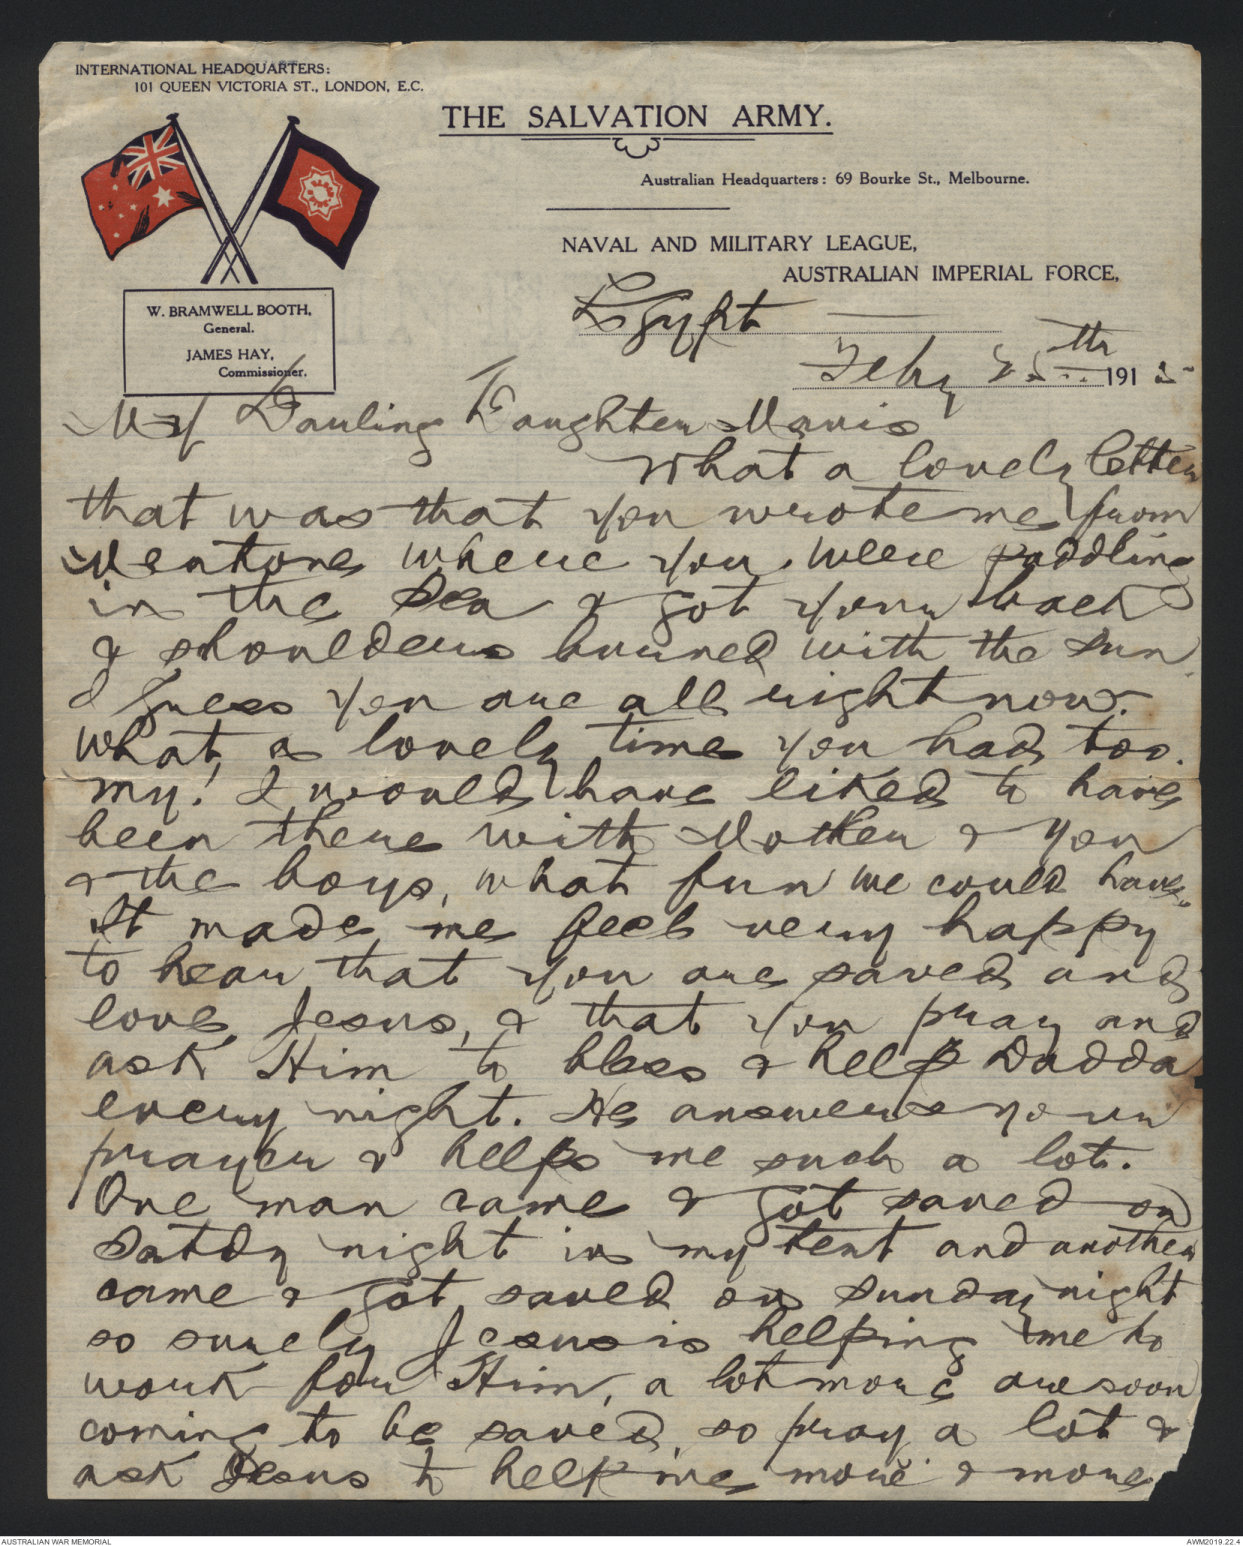 INTERNATIONAL HEADQUARTERS:
101 QUEEN VICTORIA ST., LONDON, E.C.
THE SALVATION ARMY.
Australian Headquarters: 69 Bourke St., Melbourne.
NAVAL AND MILITARY LEAGUE,
AUSTRALIAN IMPERIAL FORCE,
W. BRAMWELL BOOTH,
General.
JAMES HAY,
Commissioner.
Egypt
Feby 25th 1915
My Darling Daughter Mavis
What a lovely letter
that was that you wrote me from
Mentone where you were paddling
in the Sea & got your back
& shoulders burned with the sun
I guess you are all right now.
What a lovely time you had too.
my! I would have liked to have
been there with Mother & you
& the boys, what fun we could have.
It made me feel very happy
to hear that you are saved and
love Jesus, & that you pray and
ask Him to bless & help Dadda
every night. He answers your
prayer & helps me such a lot.
One man came & got saved on
Satdy night in my tent and another
came & got saved on Sunday night
so surely Jesus is helping me to
work for Him, a lot more are soon
coming to be saved, so pray a lot &
ask Jesus to help me more & more
AUSTRALIAN WAR MEMORIAL
AWM2019.22.4